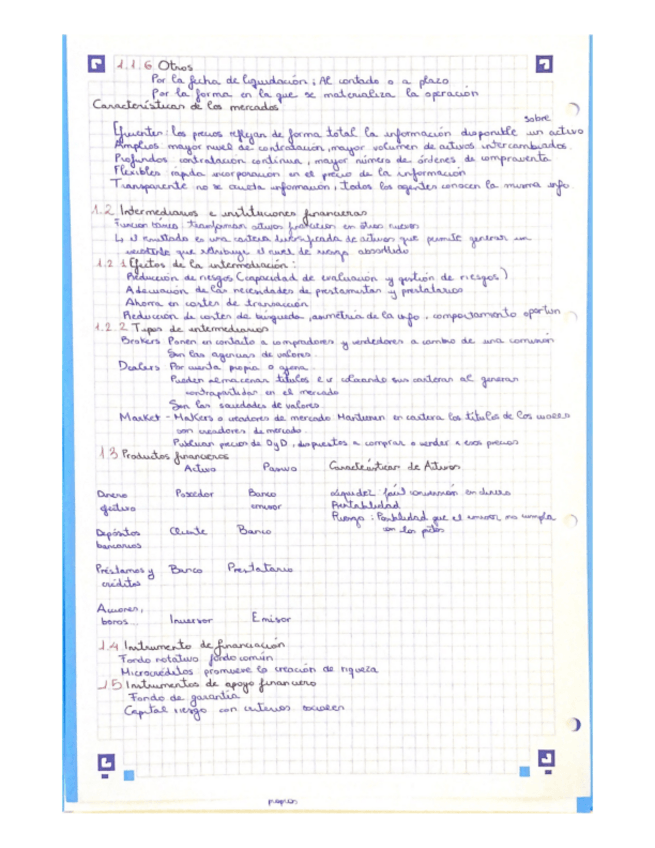 1.1.6 Otros
Por la fecha de liquidación: Al contado o a plazo
Por la forma en la que se materializa la operación
Características de los mercados
sobre
Eficientes: los precios reflejan de forma total la información disponible un activo
Amplios mayor nivel de contratación, mayor volumen de activos intercambiados.
Profundos contratación continua, mayor número de órdenes de compraventa
Flexibles rápida incorporación en el precio de la información
Transparente no se oculta información, todos los agentes conocen la misma info.
1.2 Intermediarios e instituciones financieras
Función básica: transforman activos primarios en otros nuevos
el resultado es una cartera diversificada de activos que permite generar un
que retribuye el nivel de riesgo absorbido
1.2.1 Efectos de la intermediación:
Reducción de riesgos (capacidad de evaluación y gestión de riesgos)
Adecuación de las necesidades de prestamistas y prestatarios
Ahorro en costes de transacción
Reducción de costes de búsqueda, asimetría de la info, comportamiento oportun
1.2.2 Tipos de intermediarios
Brokers: Ponen en contacto a compradores y vendedores a cambio de una comisión
Son las agencias de valores.
Dealers Por cuenta propia o ajena.
Pueden almacenar títulos e ir colocando sus carteras al generar
contrapartidas en el mercado
Son las sociedades de valores
Market-Makers o creadores de mercado. Mantienen en cartera los títulos de los
son creadores de mercado.
Publican precios de O y D, dispuestos a comprar o vender a esos precios
1.3 Productos financieros
Activo Pasivo Características de Activos
Dinero efectivo Poseedor Banco emisor
Liquidez: fácil conversión en dinero
Rentabilidad
Riesgo: Posibilidad que el emisor no cumpla
con los
Depósitos bancarios Cliente Banco
Préstamos y créditos Banco Prestatario
Acciones, bonos... Inversor Emisor
1.4 Instrumento de financiación
Fondo rotativo fondo común
Microcréditos promueve la creación de riqueza
1.5 Instrumentos de apoyo financiero
Fondo de garantía
Capital riesgo con criterios sociales
propios